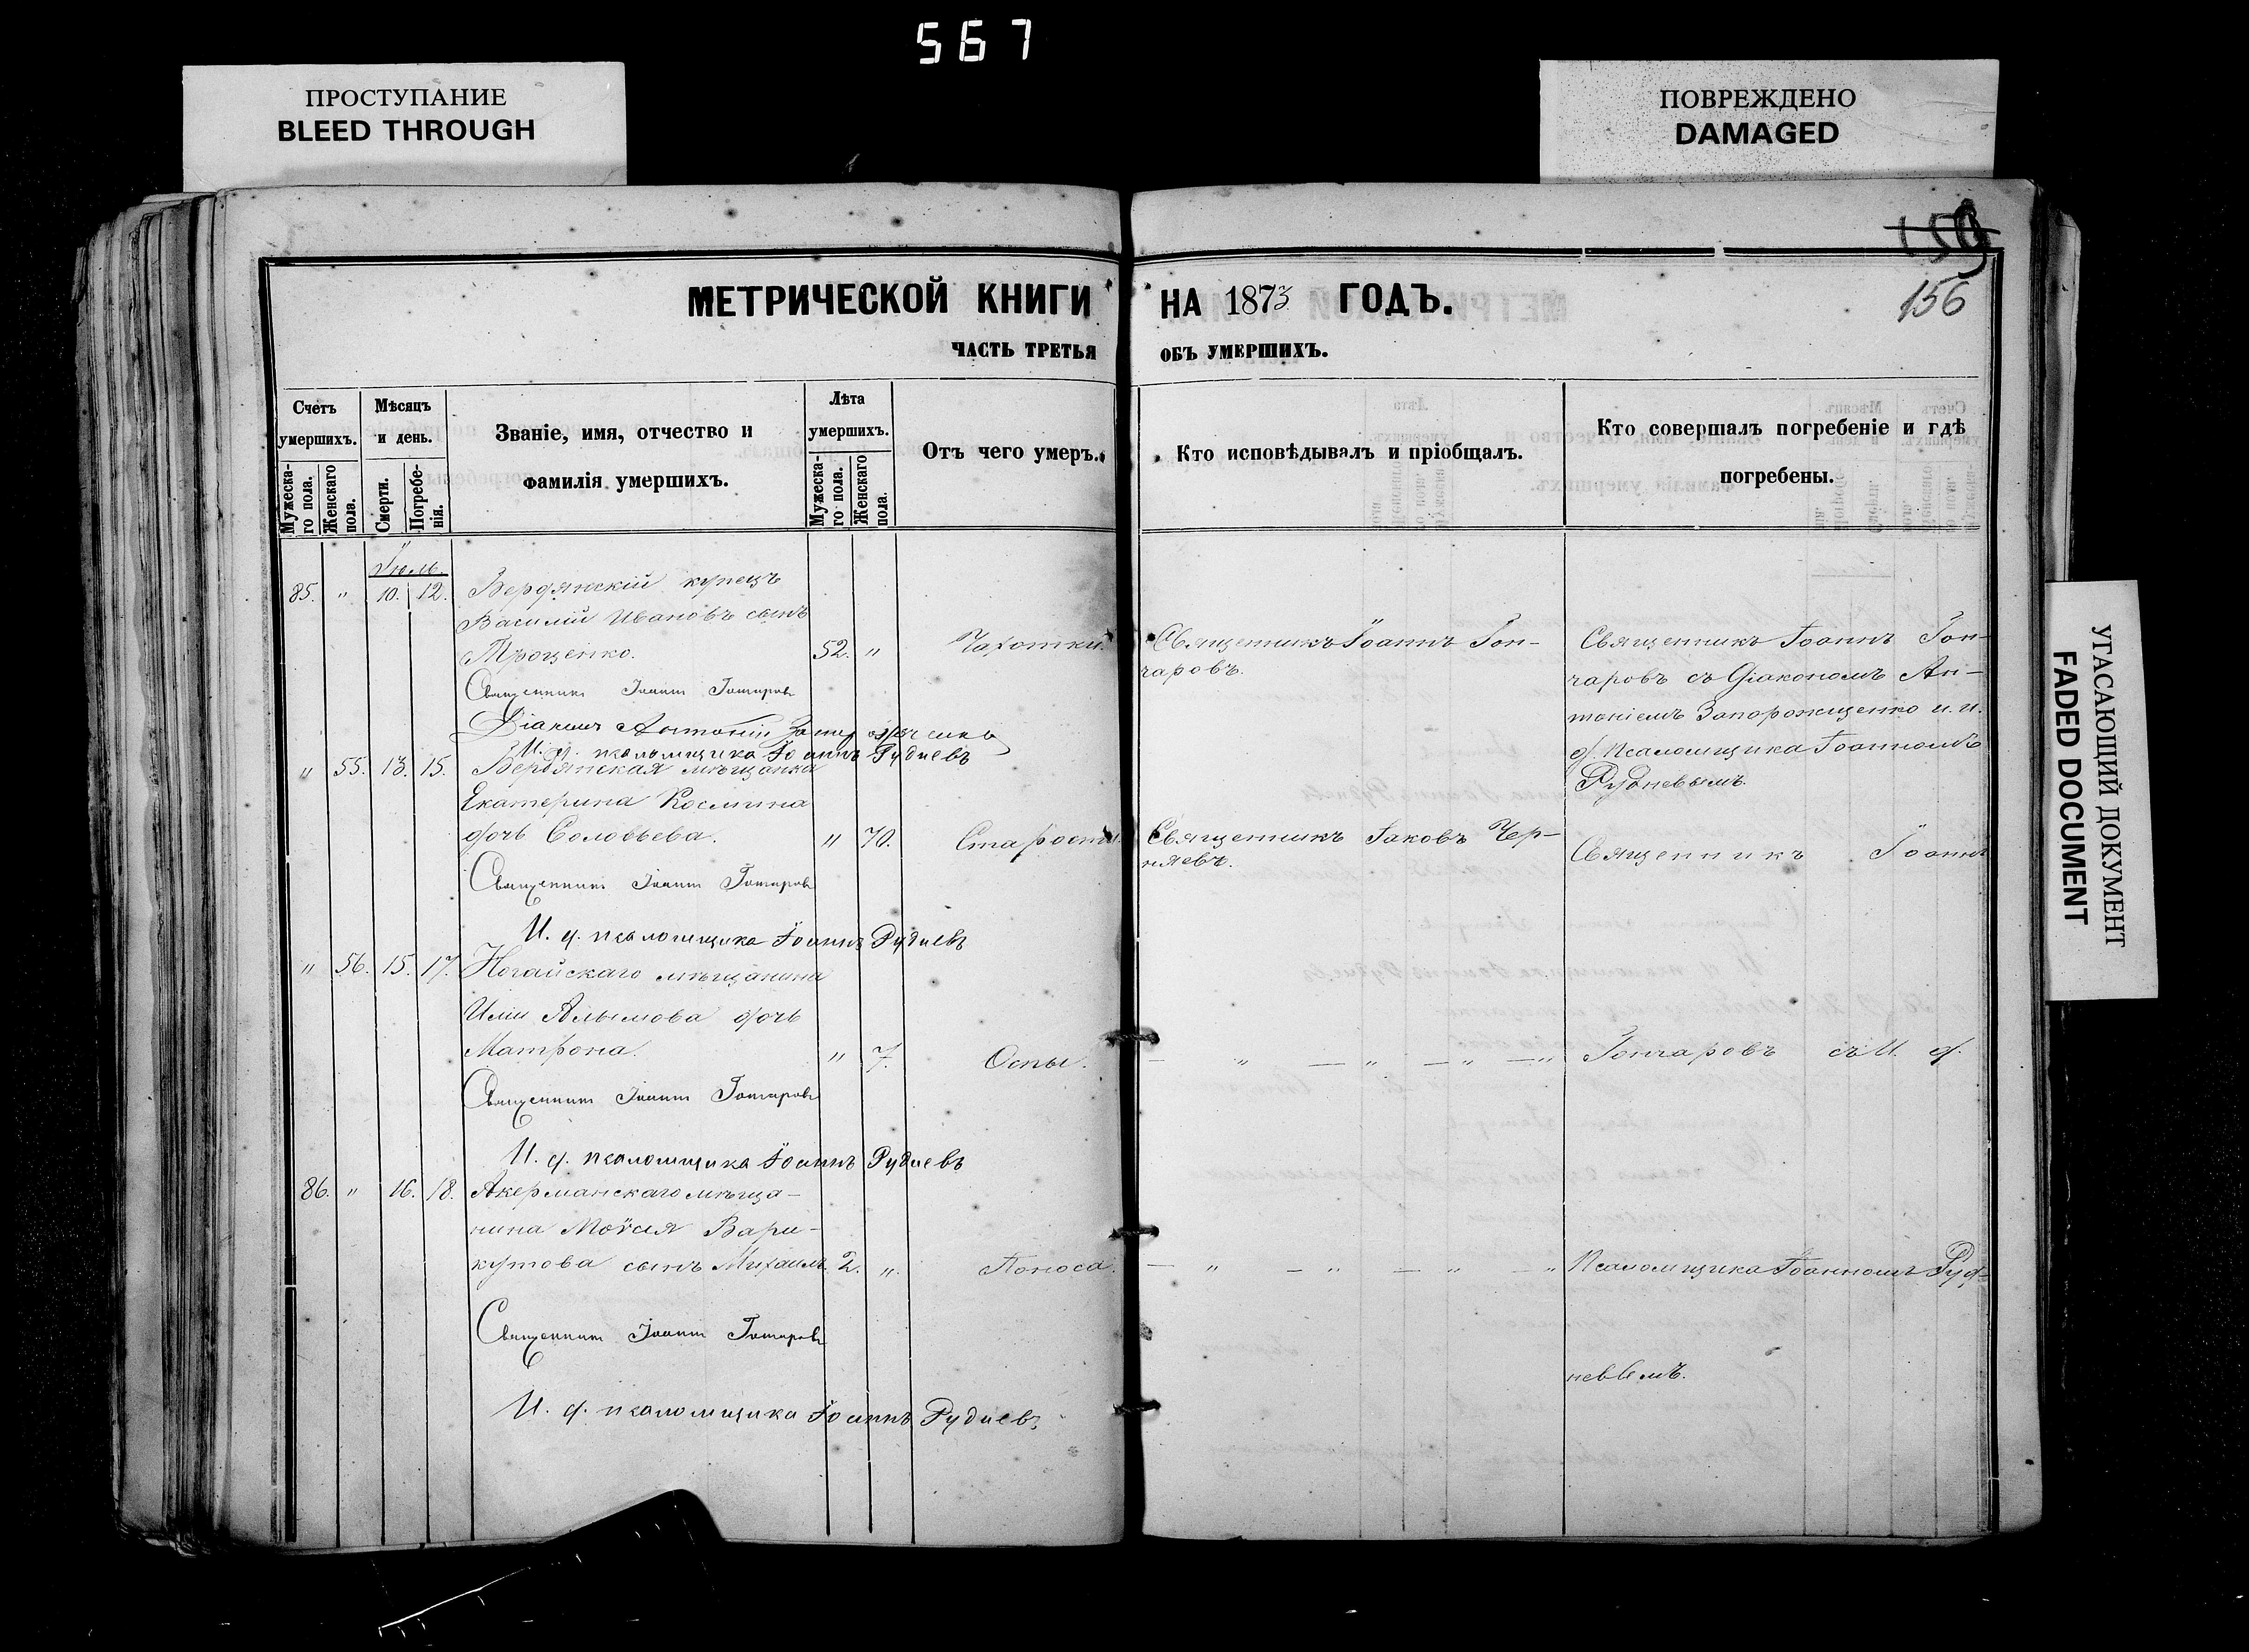 567
ПРОСТУПАНИЕ
BLEED THROUGH
ПОВРЕЖДЕНО
DAMAGED
УГАСАЮЩИЙ ДОКУМЕНТ
FADED DOCUMENT
159
156
МЕТРИЧЕСКОЙ КНИГИ НА 1873 ГОДЪ.
ЧАСТЬ ТРЕТЬЯ ОБЪ УМЕРШИХЪ.
Счетъ умершихъ.
Мужеска-го пола.
Женскаго пола.
Мѣсяцъ и день.
Смерти.
Погребе-нія.
Званіе, имя, отчество и
фамилія умершихъ.
Лѣта умершихъ.
Мужеска-го пола.
Женскаго пола.
Отъ чего умеръ.
Кто исповѣдывалъ и пріобщалъ.
Кто совершалъ погребеніе и гдѣ
погребены.
Іюль.
85. " 10. 12. Бердянскій купецъ
Василій Ивановъ сынъ
Троценко. 52. " Чахотки.
Священникъ Іоаннъ Гончаровъ
Діаконъ Антоній Запорожченко
И. д. псаломщика Іоаннъ Рудневъ
" 55. 13. 15. Бердянская мѣщанка
Екатерина Космина
дочь Соловьева. " 70. Старости.
Священникъ Іоаннъ Гончаровъ
И. д. псаломщика Іоаннъ Рудневъ
" 56. 15. 17. Ногайскаго мѣщанина
Иліи Алымова дочь
Матрона. " 7. Оспы.
Священникъ Іоаннъ Гончаровъ
И. д. псаломщика Іоаннъ Рудневъ
86. " 16. 18. Акерманскаго мѣща-
нина Моѵсея Вари-
кутова сынъ Михаилъ. 2. " Поноса.
Священникъ Іоаннъ Гончаровъ
И. д. псаломщика Іоаннъ Рудневъ
Священникъ Іоаннъ Гон-
чаровъ.
Священникъ Іаковъ Чер-
няевъ.
— " — " — " — "
— " — " — " — "
Священникъ Іоаннъ Гон-
чаровъ съ Діакономъ Ан-
тоніемъ Запорожченко и и.
д. Псаломщика Іоанномъ
Рудневымъ.
Священникъ Іоаннъ
Гончаровъ съ И. д.
Псаломщика Іоанномъ Руд-
невымъ.